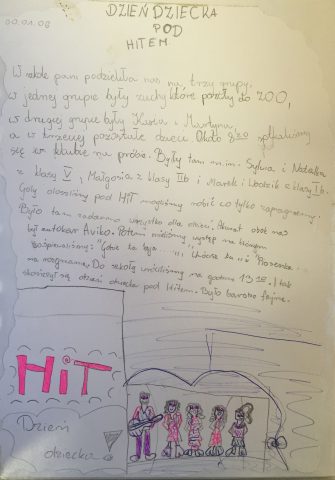 DZIEŃ DZIECKA
POD
HITEM.
W szkole pani podzieliła nas na trzy grupy.
w jednej grupie były zuchy które poszły do ZOO,
w drugiej grupie były Kasia i Martyna,
a w trzeciej pozostałe dzieci. Około 8³⁰ spotkaliśmy
się w klubie na próbie. Były tam m.in. Sylwia i Natalka
z klasy V, Małgosia z klasy IIb i Marek i z klasy Ib.
Gdy doszliśmy pod HIT mogliśmy robić co tylko zapragniemy.
Było tam radanno wszystko dla dzieci. Akurat obok nas
był autokar Aviko. Potem mieliśmy występ na którym
zaśpiewaliśmy: "Gdzie ta keja ...", i "Piosenka ...
na rozgrzanie. Do szkoły wróciliśmy na godzinę 13. I tak
skończył się dzień dziecka pod Hitem. Było bardzo fajnie.
HiT
Dzień
dziecka!